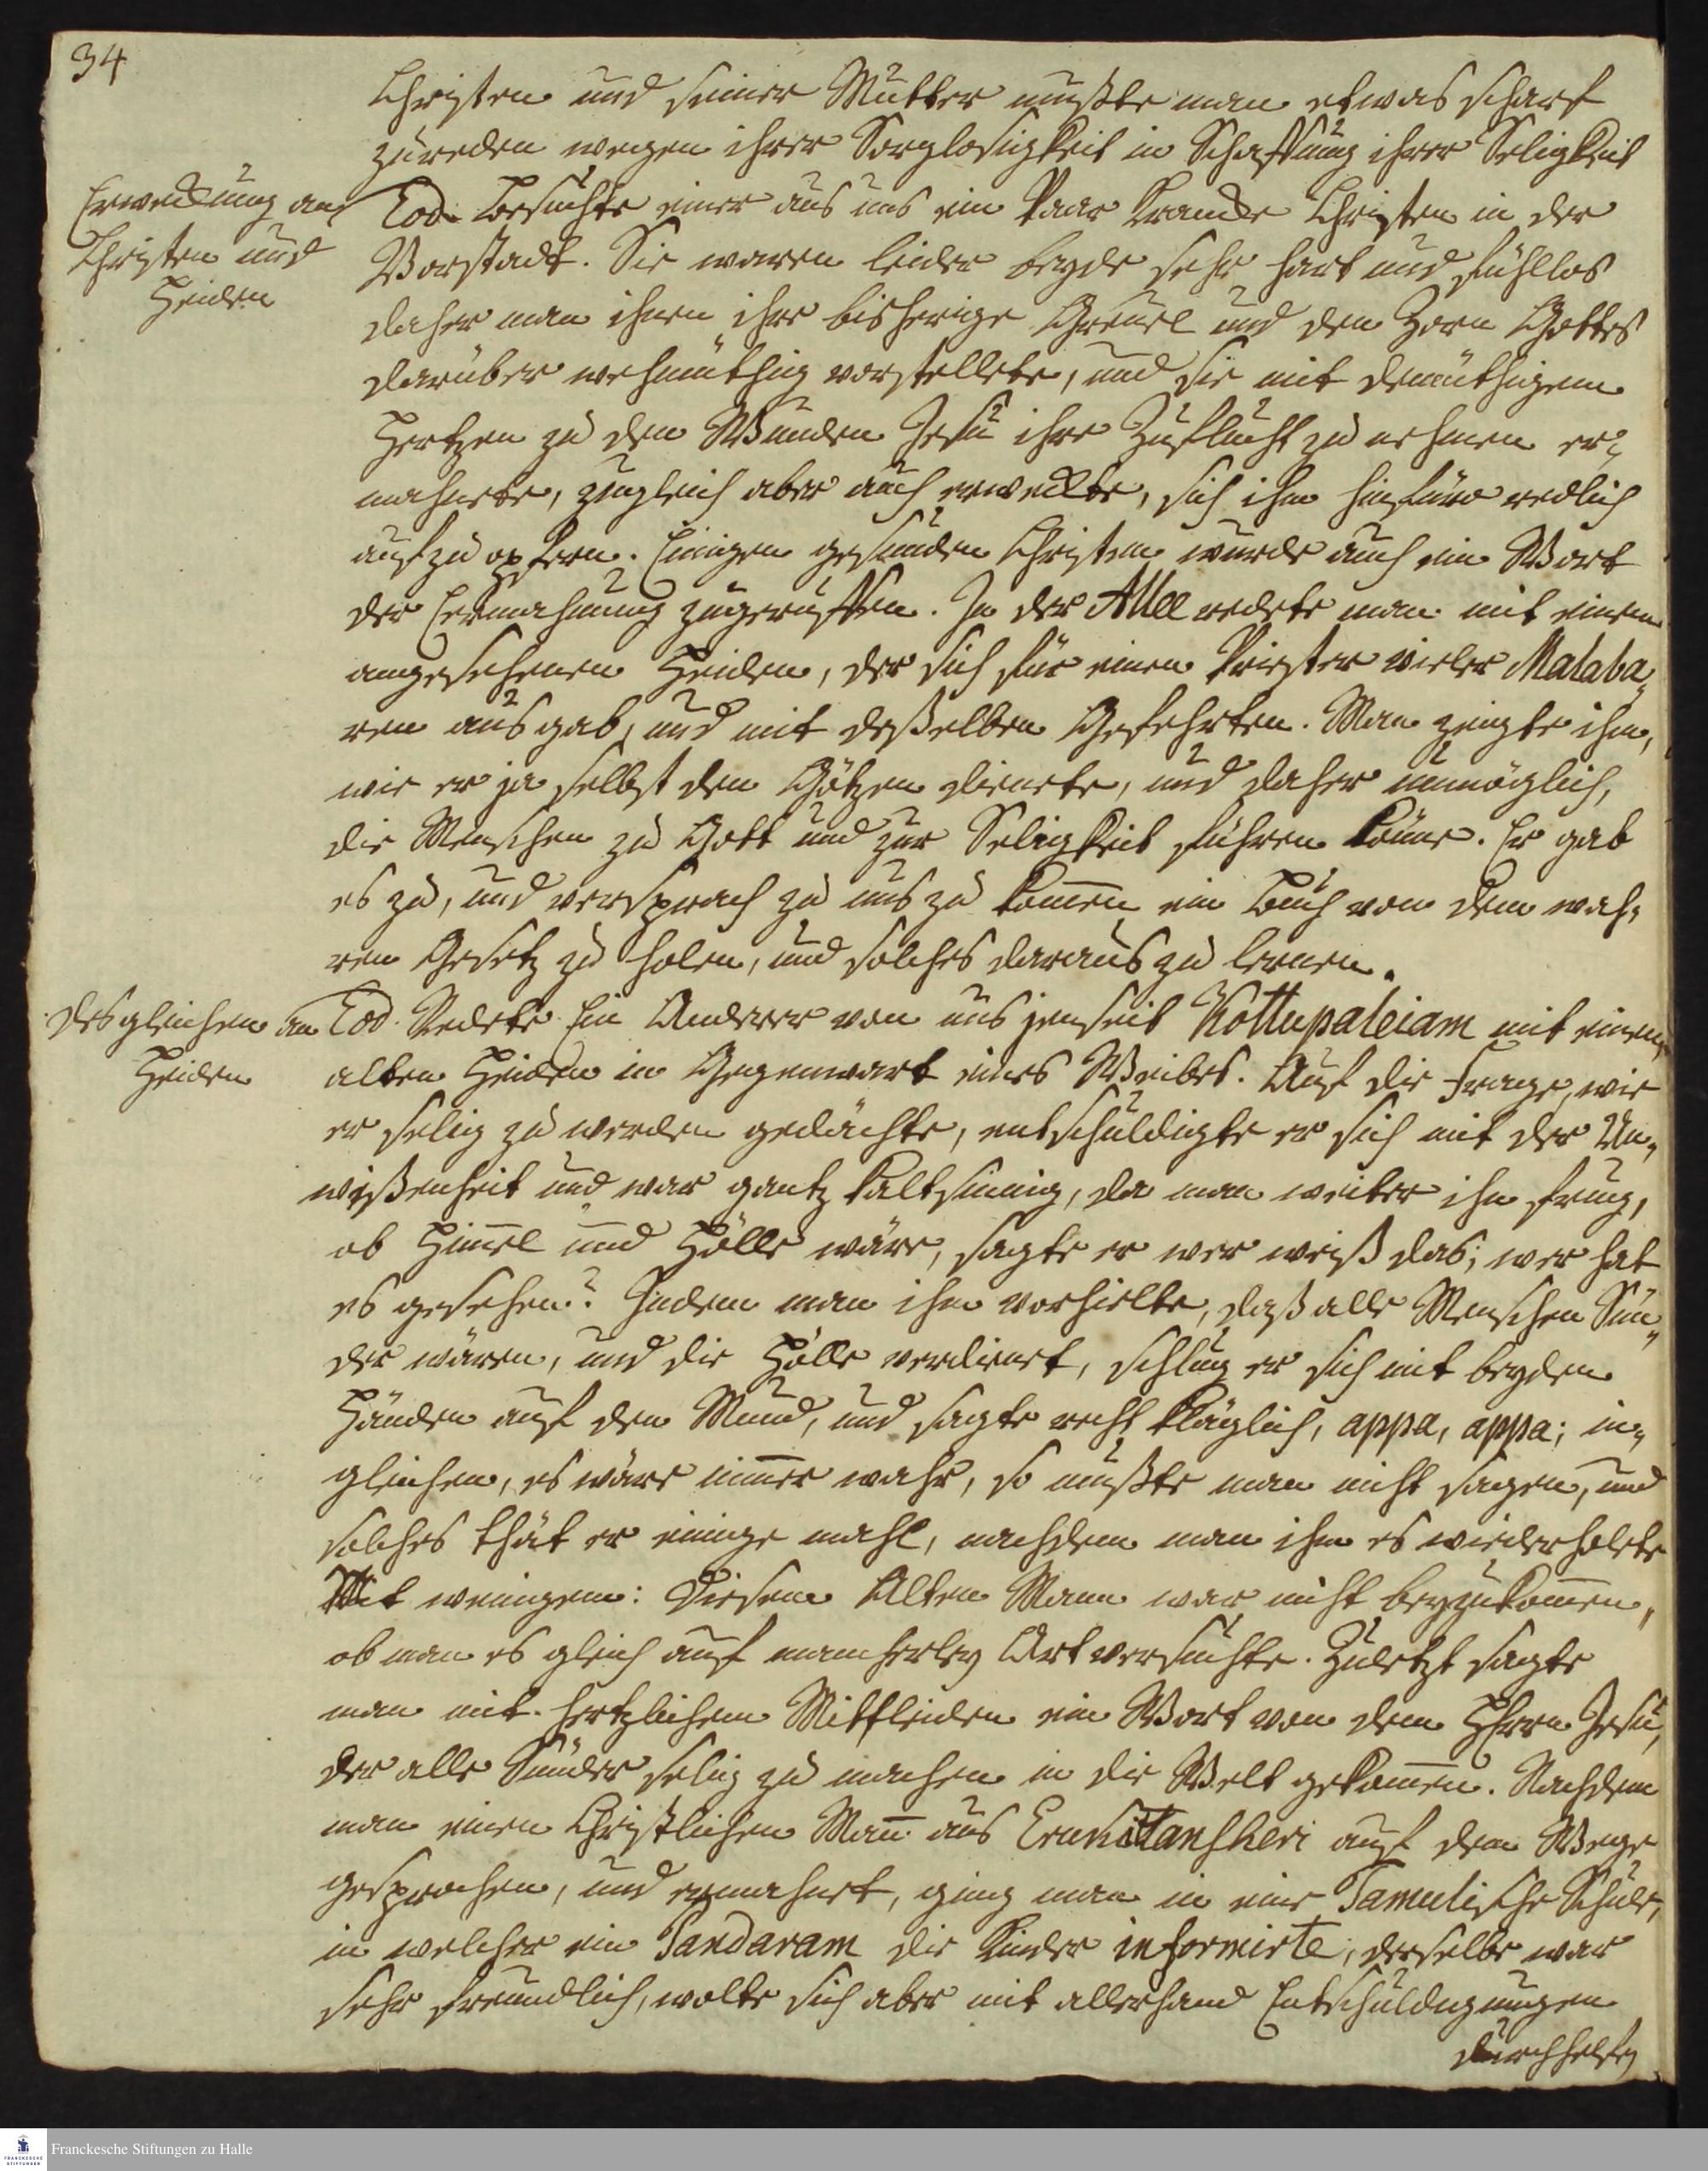 34
Christen und seiner Mutter mußte man etwas scharf
zureden wegen ihrer Sorglosigkeit in Schaffung ihrer Seligkeit
Erweckung an
Christen und
Heiden
Eod. Besuchte einer aus uns ein Paar Krancke Christen in der
Vorstadt. Sie waren leider beyde sehr hart und fühllos
daher man ihnen ihre bisherige Greuel und den Zorn Gottes
darüber wehmüthig vorstellete, und sie mit demüthigem
Hertzen zu den Wunden Jesu ihre Zuflucht zu nehmen er-
mahnete, zugleich aber auch erweckte, sich ihm hinfüro redlich
aufzuopfern. Einigen gesunden Christen wurde auch ein Wort
der Ermahnung zugeruffen. In der Allee redete man mit einem
angesehenen Heiden, der sich für einen Priester vieler Malaba-
ren ausgab, und mit deßelben Gefehrten. Man zeigte ihm,
wie er ja selbst den Götzen dienete, und daher unmöglich,
die Menschen zu Gott und zur Seligkeit führen könne. Er gab
es zu, und versprach zu uns zu kom̄en ein Buch von dem wah-
ren Gesetz zu holen, und solches daraus zu lernen.
desgleichen an
Heiden
Eod. Redete Ein Anderer von uns jenseit Kottupaleiam mit einem
alten Heiden in Gegenwart eines Weibes. Auf die Frage, wie
er selig zu werden gedächte, entschuldigte er sich mit der Un-
wißenheit und war gantz kaltsinnig, da man weiter ihn frug,
ob Him̄el und Hölle wäre, sagte er wer weiß das; wer hat
es gesehen? Indem man ihm vorhielte, daß alle Menschen Sün-
der wären, und die Hölle verdienet, schlug er sich mit beyden
Händen auf den Mund, und sagte recht kläglich, appa, appa; in-
gleichen, es wäre im̄er wahr, so müßte man nicht sagen, und
solches thät er einige mahl, nachdem man ihm es wiederholete
Mit wenigem: Diesem Alten Mann war nicht beyzukom̄en,
ob man es gleich auf mancherley Art versuchte. Zuletzt sagte
man mit hertzlichem Mittleiden ein Wort von dem HErrn Jesu,
der alle Sünder selig zu machen in die Welt gekom̄en. Nachdem
man einen Christlichen Man̄ aus Erukitanscheri auf dem Wege
gesprochen, und ermahnet, ging man in eine Tamulische Schule,
in welcher ein Pandaram die Kinder informirte, derselbe war
sehr freundlich, wolte sich aber mit allerhand Entschuldigungen
durchhelfen
Franckesche Stiftungen zu Halle